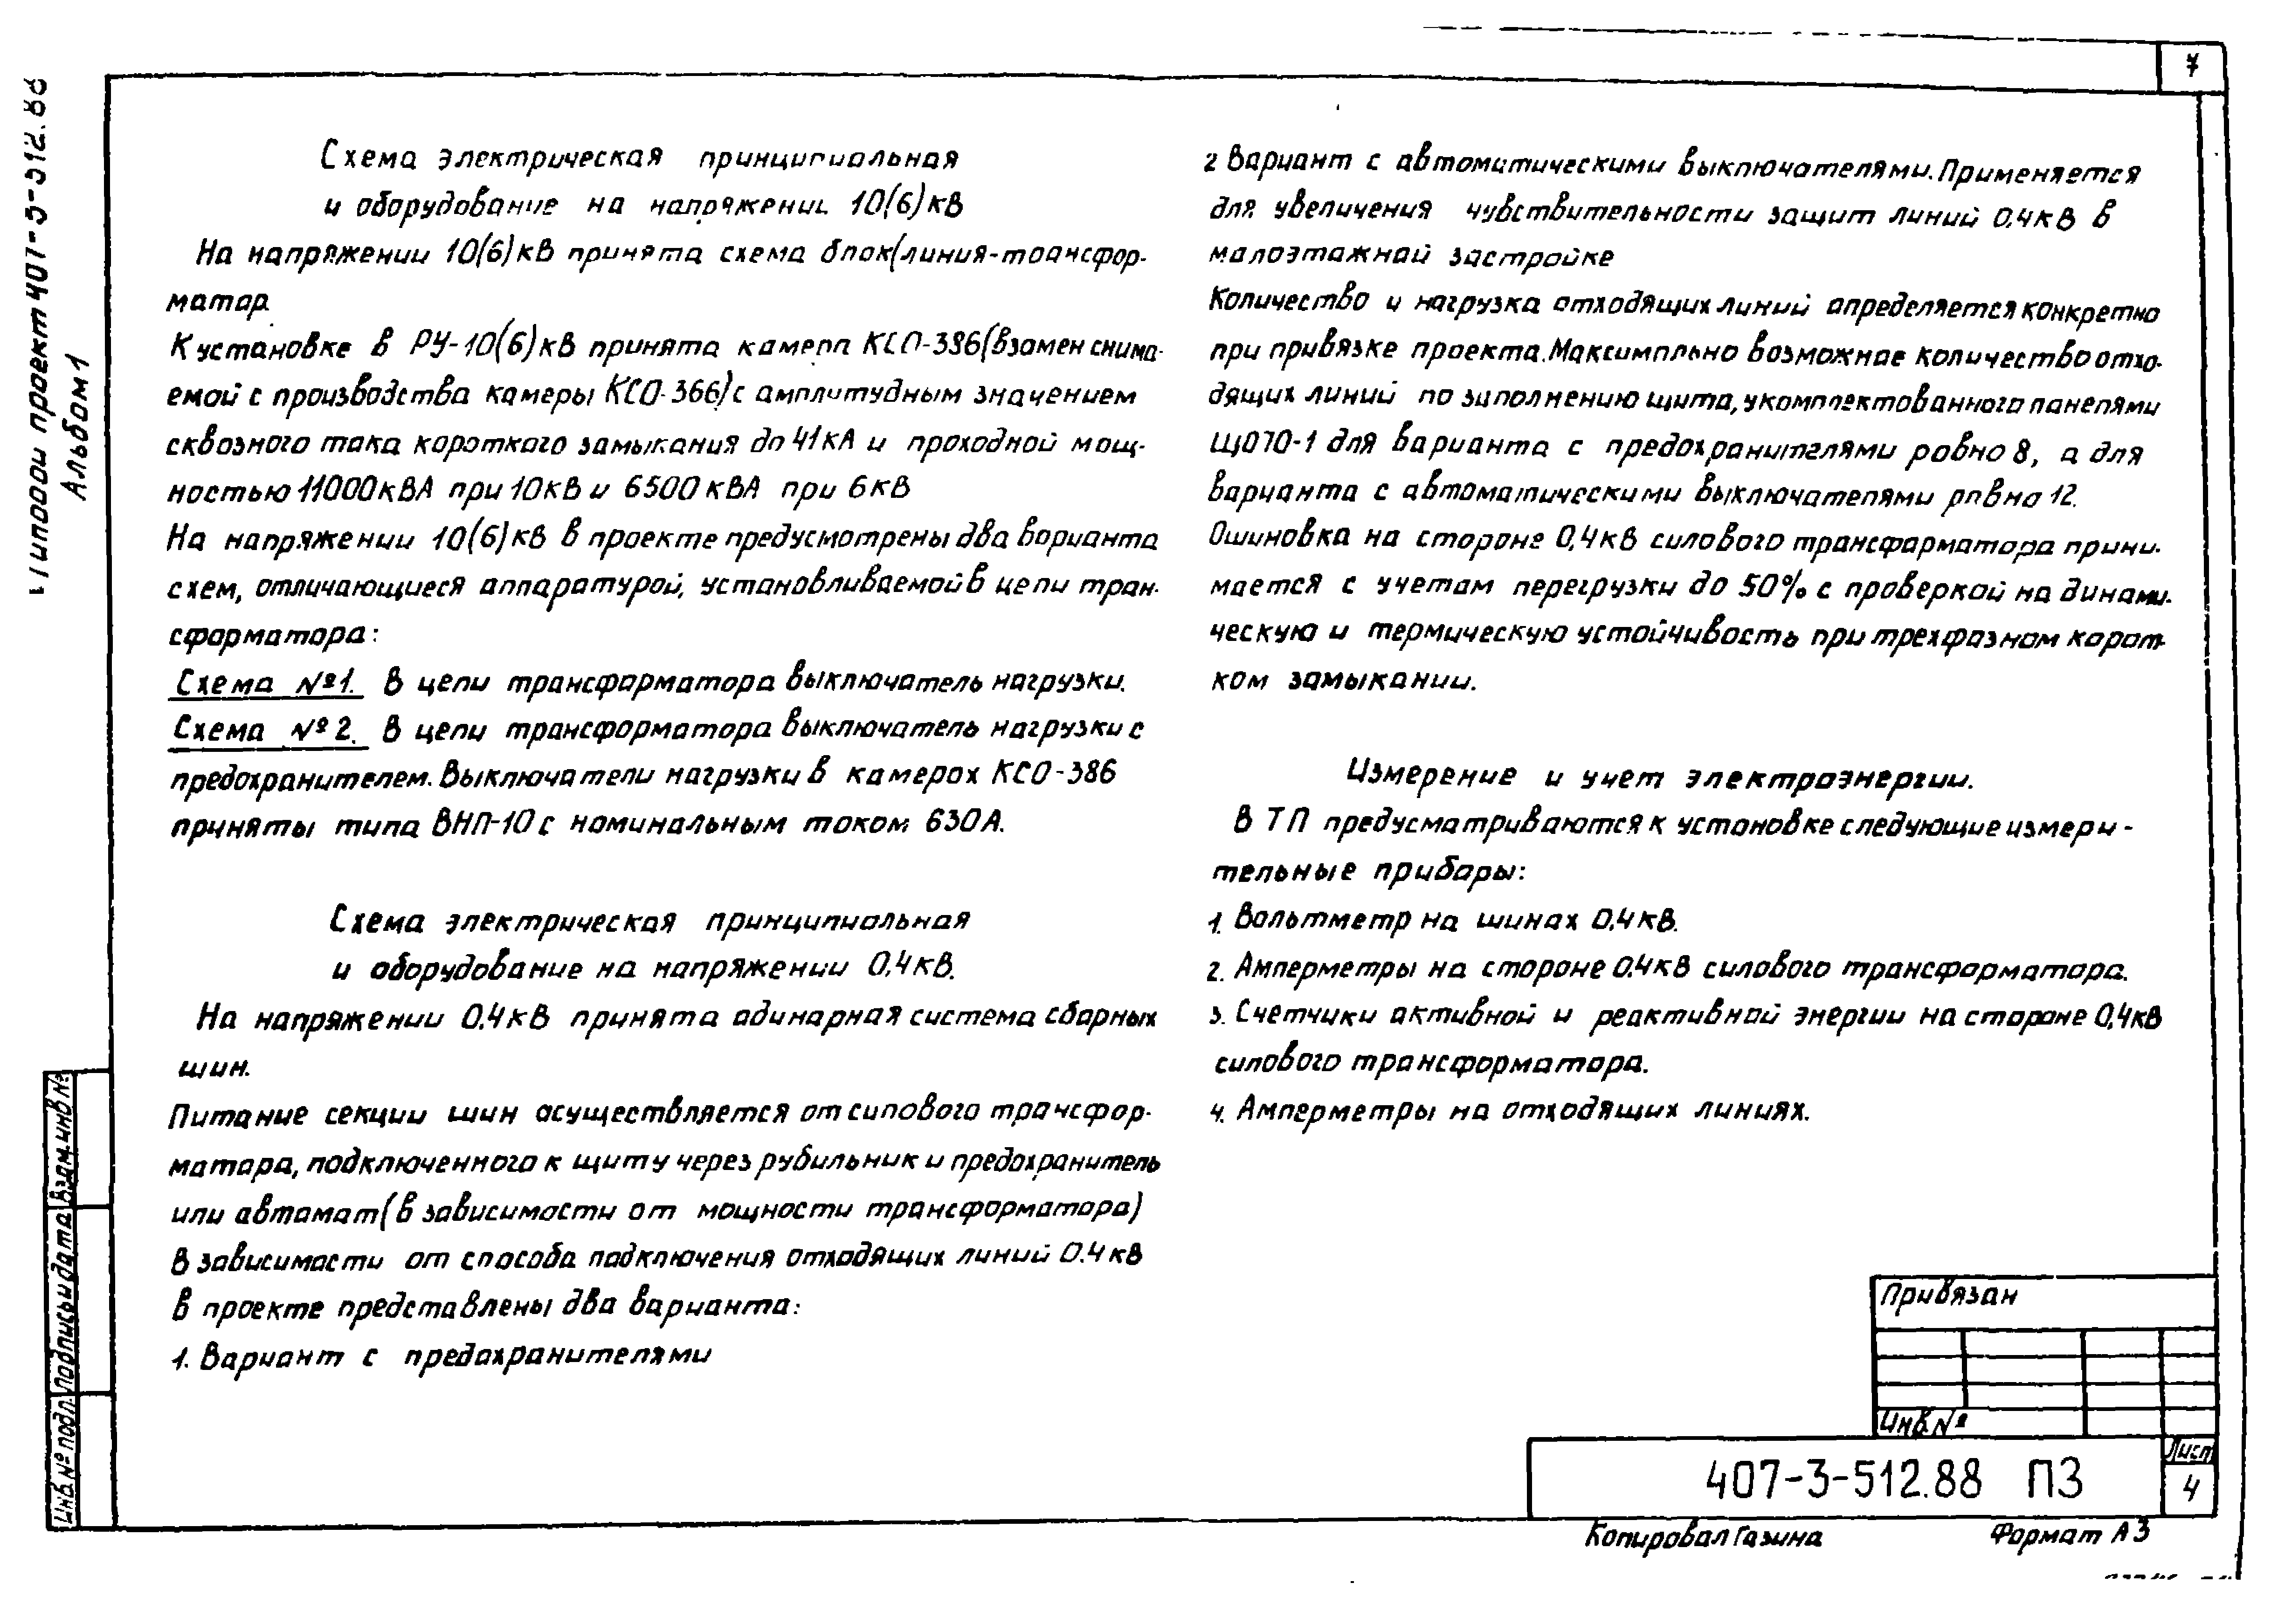 7
Типовой проект 407-3-512.88
Альбом 1
Схема электрическая принципиальная
и оборудование на напряжении 10(6)кВ
На напряжении 10(6)кВ принята схема блок(линия-трансфор-
матор.
К установке в РУ-10(6)кВ принята камера КСО-386(взамен снима-
емой с производства камеры КСО-366)с амплитудным значением
сквозного тока короткого замыкания до 41кА и проходной мощ-
ностью 11000кВА при 10кВ и 6500кВА при 6кВ
На напряжении 10(6)кВ в проекте предусмотрены два варианта
схем, отличающиеся аппаратурой, устанавливаемой в цепи тран-
сформатора:
Схема №1. В цепи трансформатора выключатель нагрузки.
Схема №2. В цепи трансформатора выключатель нагрузки с
предохранителем. Выключатели нагрузки в камерах КСО-386
приняты типа ВНП-10 с номинальным током 630А.
Схема электрическая принципиальная
и оборудование на напряжении 0,4кВ.
На напряжении 0,4кВ принята одинарная система сборных
шин.
Питание секции шин осуществляется от силового трансфор-
матора, подключенного к щиту через рубильник и предохранитель
или автомат(в зависимости от мощности трансформатора)
В зависимости от способа подключения отходящих линий 0.4кВ
в проекте представлены два варианта:
1. Вариант с предохранителями
2 Вариант с автоматическими выключателями. Применяется
для увеличения чувствительности защит линий 0.4кВ в
малоэтажной застройке
Количество и нагрузка отходящих линий определяется конкретно
при привязке проекта. Максимально возможное количество отхо-
дящих линий по заполнению щита, укомплектованного панелями
ЩО70-1 для варианта с предохранителями равно 8, а для
варианта с автоматическими выключателями равно 12.
Ошиновка на стороне 0,4кВ силового трансформатора прини-
мается с учетом перегрузки до 50% с проверкой на динами-
ческую и термическую устойчивость при трехфазном корот-
ком замыкании.
Измерение и учет электроэнергии.
В ТП предусматриваются к установке следующие измери-
тельные приборы:
1. Вольтметр на шинах 0,4кВ.
2. Амперметры на стороне 0.4кВ силового трансформатора.
3. Счетчики активной и реактивной энергии на стороне 0,4кВ
силового трансформатора.
4. Амперметры на отходящих линиях.
Взам. инв №
Подпись и дата
Инв. № подл.
Привязан
Инв.№
407-3-512.88 ПЗ
Лист
4
Копировал Газина
Формат А3